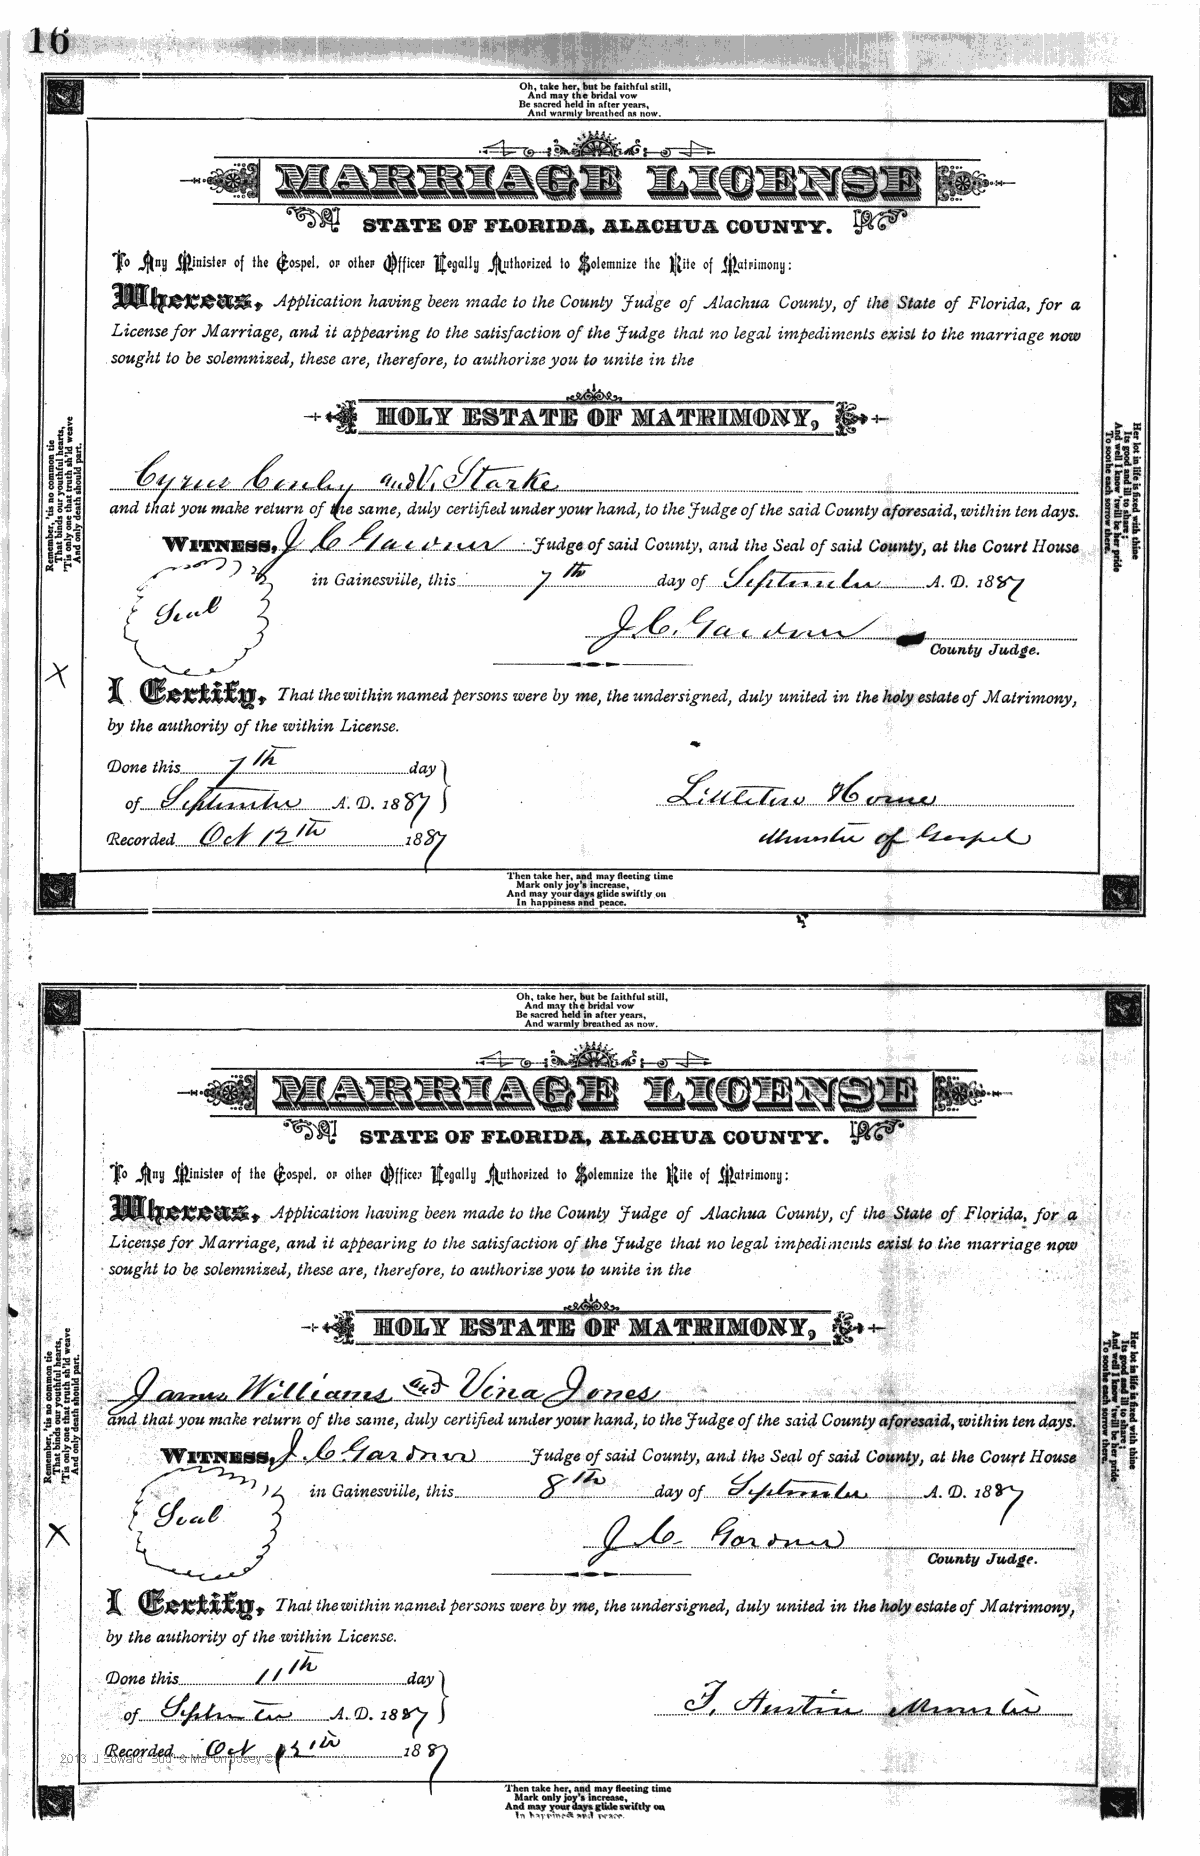 16
Oh, take her, but be faithful still,
And may the bridal vow
Be sacred held in after years,
And warmly breathed as now.
MARRIAGE LICENSE
STATE OF FLORIDA, ALACHUA COUNTY.
To Any Minister of the Gospel, or other Officer Legally Authorized to Solemnize the Rite of Matrimony:
Whereas, Application having been made to the County Judge of Alachua County, of the State of Florida, for a
License for Marriage, and it appearing to the satisfaction of the Judge that no legal impediments exist to the marriage now
sought to be solemnized, these are, therefore, to authorize you to unite in the
HOLY ESTATE OF MATRIMONY,
Cyrus Conley and V. Starke
and that you make return of the same, duly certified under your hand, to the Judge of the said County aforesaid, within ten days.
WITNESS, J C Gardner Judge of said County, and the Seal of said County, at the Court House
in Gainesville, this 7th day of September A. D. 1887
Seal
J. C. Gardner
County Judge.
X
I Certify, That the within named persons were by me, the undersigned, duly united in the holy estate of Matrimony,
by the authority of the within License.
Done this 7th day
of September A. D. 1887
Littleton Horne
Recorded Oct 12th 1887
Minister of Gospel
Remember, 'tis no common tie
That binds our youthful hearts,
'Tis only one that truth sh'ld weave
And only death should part.
Her lot in life is fixed with thine
Its good and ill to share;
And well I know 'twill be her pride
To soothe each sorrow there.
Then take her, and may fleeting time
Mark only joy's increase,
And may your days glide swiftly on
In happiness and peace.
Oh, take her, but be faithful still,
And may the bridal vow
Be sacred held in after years,
And warmly breathed as now.
MARRIAGE LICENSE
STATE OF FLORIDA, ALACHUA COUNTY.
To Any Minister of the Gospel, or other Officer Legally Authorized to Solemnize the Rite of Matrimony:
Whereas, Application having been made to the County Judge of Alachua County, of the State of Florida, for a
License for Marriage, and it appearing to the satisfaction of the Judge that no legal impediments exist to the marriage now
sought to be solemnized, these are, therefore, to authorize you to unite in the
HOLY ESTATE OF MATRIMONY,
James Williams and Vina Jones
and that you make return of the same, duly certified under your hand, to the Judge of the said County aforesaid, within ten days.
WITNESS, J. C Gardner Judge of said County, and the Seal of said County, at the Court House
in Gainesville, this 8th day of September A. D. 1887
Seal
J. C. Gardner
County Judge.
X
I Certify, That the within named persons were by me, the undersigned, duly united in the holy estate of Matrimony,
by the authority of the within License.
Done this 11th day
of September A. D. 1887
F. Austin Minister
Recorded Oct 12th 1887
Remember, 'tis no common tie
That binds our youthful hearts,
'Tis only one that truth sh'ld weave
And only death should part.
Her lot in life is fixed with thine
Its good and ill to share;
And well I know 'twill be her pride
To soothe each sorrow there.
Then take her, and may fleeting time
Mark only joy's increase,
And may your days glide swiftly on
In happiness and peace.